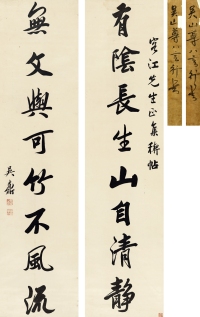 容江先生正集禊帖
有陰長生山自清靜
無文與可竹不風流
吳鼒
吳山尊八言
吳山尊八言